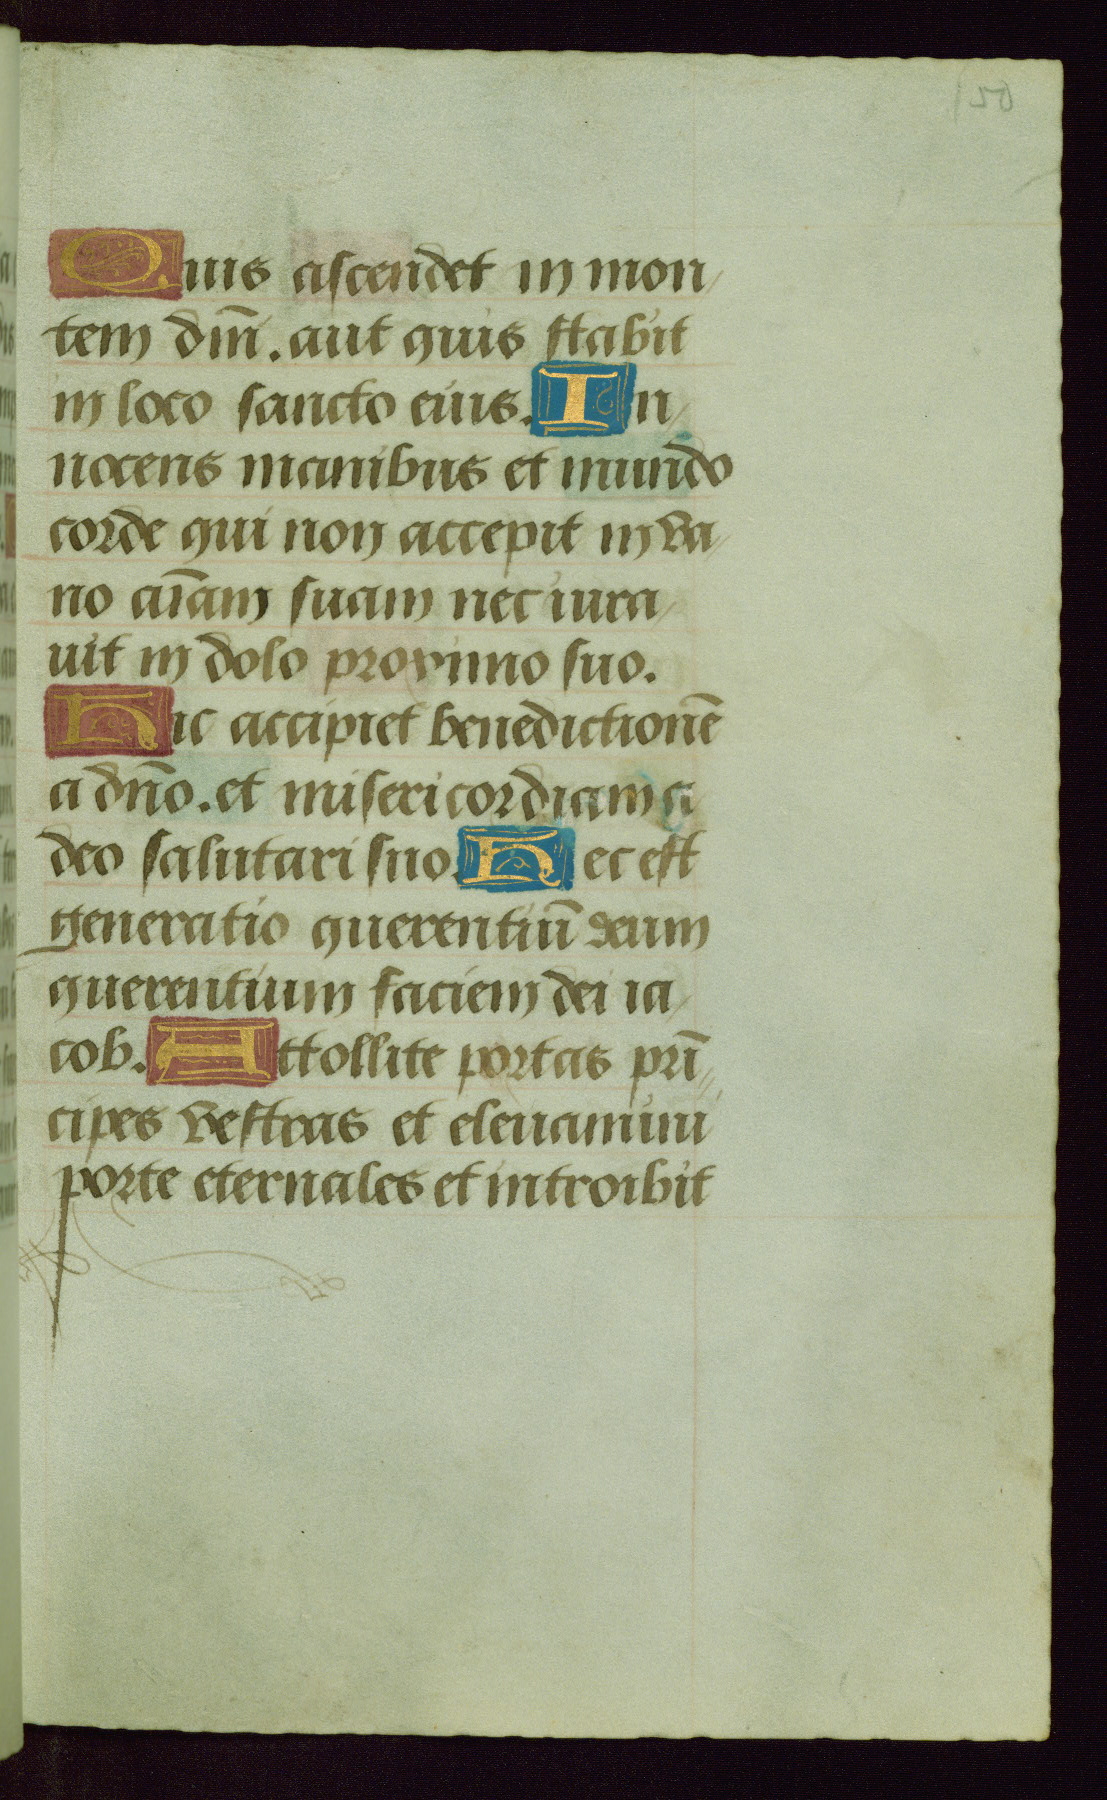 Quis ascendet in mon
tem dñi. aut quis stabit
in loco sancto eius. In
nocens manibus et mundo
corde qui non accepit in va
no aīam suam nec iura
uit in dolo proximo suo.
Hic accipiet benedictionē
a dño. et misericordiam a
deo salutari suo. Hec est
generatio querentiū deum
querentium faciem dei ia
cob. Attollite portas prī
cipes vestras et eleuamini
porte eternales et introibit